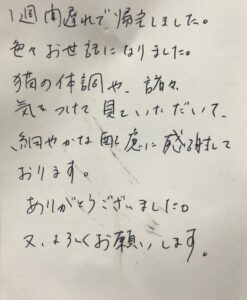 1週間遅れで帰宅しました。
色々お世話になりました。
猫の体調や、諸々
気をつけて見ていただいて、
細やかな配慮に感謝して
おります。
ありがとうございました。
又、よろしくお願いします。